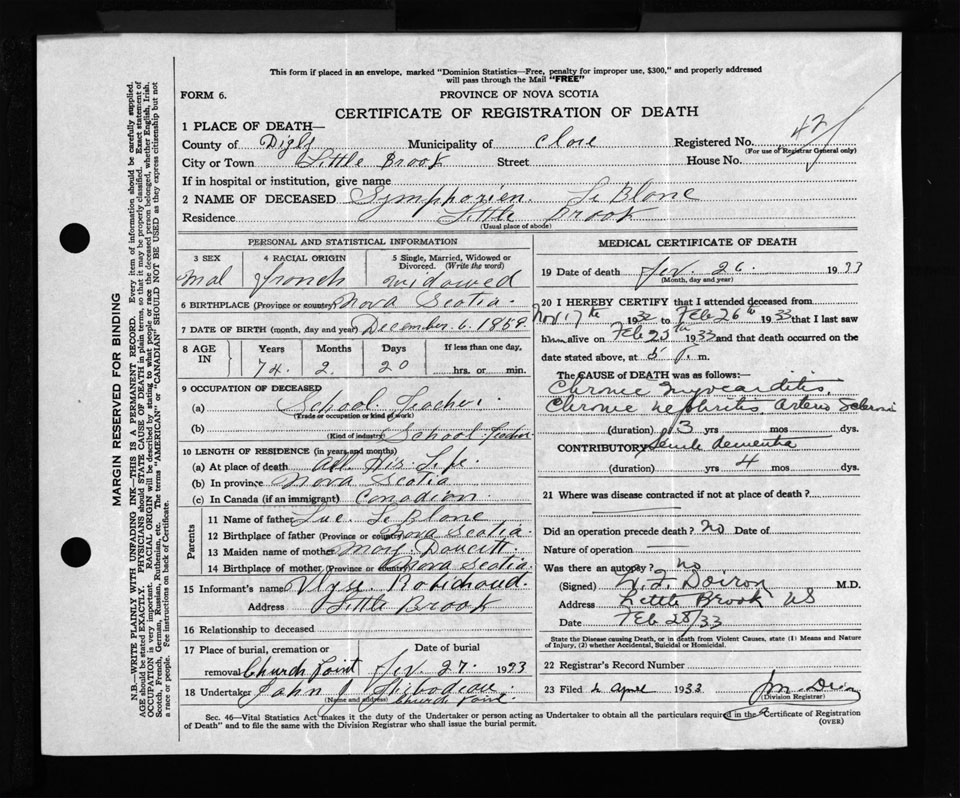 This form if placed in an envelope, marked "Dominion Statistics—Free, penalty for improper use, $300," and properly addressed
will pass through the Mail "FREE"
FORM 6. PROVINCE OF NOVA SCOTIA
CERTIFICATE OF REGISTRATION OF DEATH
1 PLACE OF DEATH—
County of Digby Municipality of Clare Registered No. 42
(For use of Registrar General only)
City or Town Little Brook Street House No.
If in hospital or institution, give name
2 NAME OF DECEASED Symphorien Le Blanc
Residence Little Brook
(Usual place of abode)
PERSONAL AND STATISTICAL INFORMATION
3 SEX 4 RACIAL ORIGIN 5 Single, Married, Widowed or
Divorced. (Write the word)
Mal french widowed
6 BIRTHPLACE (Province or country) Nova Scotia.
7 DATE OF BIRTH (month, day and year) December 6. 1859.
8 AGE IN Years Months Days If less than one day,
74. 2. 20 hrs. or min.
9 OCCUPATION OF DECEASED
(a) School Teacher
(Trade or occupation or kind of work)
(b) School Teacher
(Kind of industry)
10 LENGTH OF RESIDENCE (in years and months)
(a) At place of death All His Life.
(b) In province Nova Scotia
(c) In Canada (if an immigrant) Canadian.
Parents
11 Name of father Luc Le Blanc
12 Birthplace of father (Province or country) Nova Scotia
13 Maiden name of mother Mary Doucett.
14 Birthplace of mother (Province or country) Nova Scotia.
15 Informant's name Ulysse Robichaud.
Address Little Brook
16 Relationship to deceased
17 Place of burial, cremation or Date of burial
removal Church Point 27. 1933
18 Undertaker John J Thibodeau
(Name and address) Church Point
MEDICAL CERTIFICATE OF DEATH
19 Date of death 26. 1933
(Month, day and year)
20 I HEREBY CERTIFY that I attended deceased from
Nov 17th 1932 to Feb 26th 1933 that I last saw
him alive on Feb 25th 1933 and that death occurred on the
date stated above, at 5 P. m.
The CAUSE of DEATH was as follows:—
Chronic Myocarditis,
Chronic nephritis. Arterio Sclerosis
(duration) 3 yrs mos dys.
CONTRIBUTORY Senile dementia
(duration) yrs 4 mos dys.
21 Where was disease contracted if not at place of death?
Did an operation precede death? No Date of
Nature of operation
Was there an autopsy? no
(Signed) Doiron M.D.
Address Little Brook NS
Date Feb 28/33
State the Disease causing Death, or in death from Violent Causes, state (1) Means and Nature
of Injury, (2) whether Accidental, Suicidal or Homicidal.
22 Registrar's Record Number
23 Filed 2 April 1933
(Division Registrar)
Sec. 46—Vital Statistics Act makes it the duty of the Undertaker or person acting as Undertaker to obtain all the particulars required in the Certificate of Registration
of Death" and to file the same with the Division Registrar who shall issue the burial permit. (OVER)
MARGIN RESERVED FOR BINDING
N.B.—WRITE PLAINLY WITH UNFADING INK—THIS IS A PERMANENT RECORD. Every item of information should be carefully supplied.
AGE should be stated EXACTLY. PHYSICIANS should STATE CAUSE OF DEATH in plain terms, so that it may be properly classified. Exact statement of
OCCUPATION is very important. RACIAL ORIGIN will be described by stating to what people or race the deceased person belonged, whether English, Irish,
Scotch, French, German, Russian, Ruthenian, etc. The terms "AMERICAN" or "CANADIAN" SHOULD NOT BE USED as they express citizenship but not
a race or people. See instructions on back of Certificate.